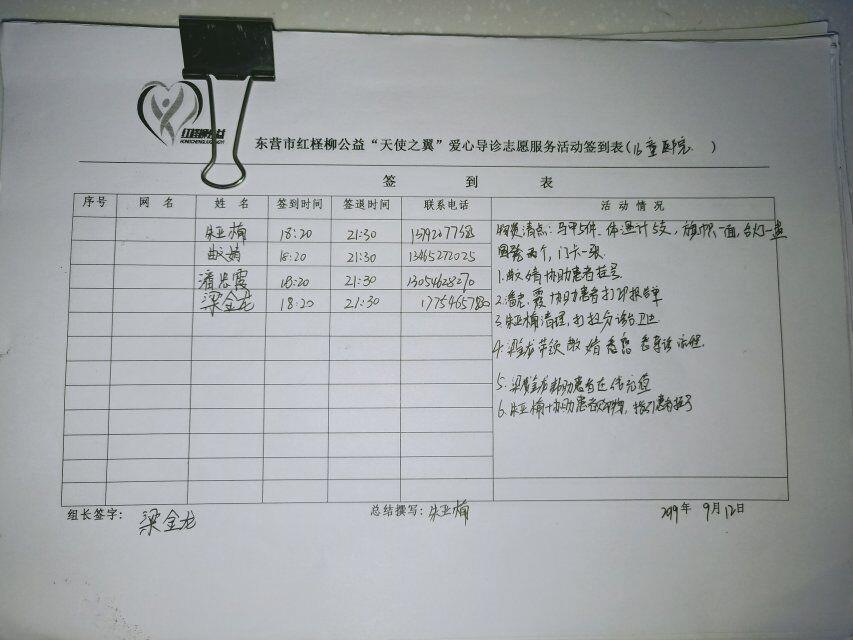 红柽柳公益
东营市红柽柳公益“天使之翼”爱心导诊志愿服务活动签到表(儿童医院)
签 到 表
序号 网 名 姓 名 签到时间 签退时间 联系电话 活动情况
朱亚楠 18:20 21:30
18:20 21:30 13465272025
潘忠霞 18:20 21:30 13054628270
梁金龙 18:20 21:30 1775465780
物资清点：马甲5件、体温计5支，旗帜一面，台灯一盏
两个，门卡一张.
1. 婧协助患者挂号
2. 潘忠霞协助患者打印报告单
3. 朱亚楠清理，打扫分诊台卫生
4. 梁金龙带领 婧 导诊流程.
5. 梁金龙协助患者 充值
6. 朱亚楠协助患者 ，指引患者挂号
组长签字：梁金龙
总结撰写：朱亚楠
2019年 9月12日